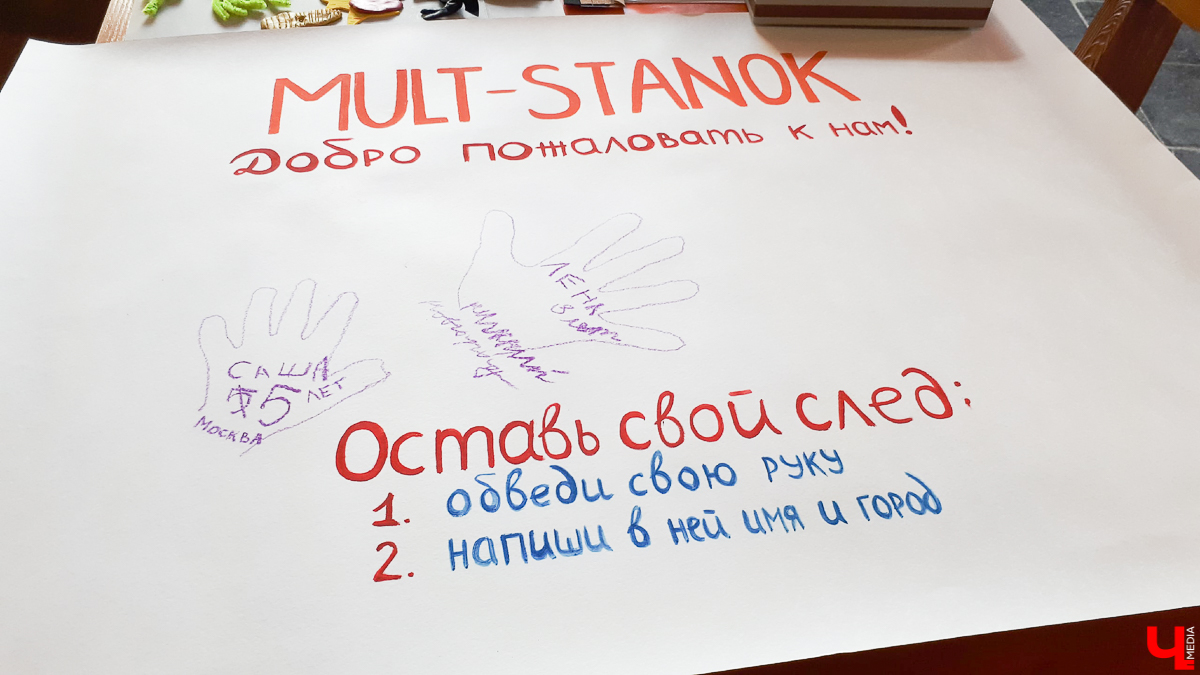 MULT-STANOK
Добро пожаловать к нам!
ЛЕНА
САША
5 ЛЕТ
МОСКВА
Оставь свой след:
1. обведи свою руку
2. напиши в ней имя и город
Ч MEDIA